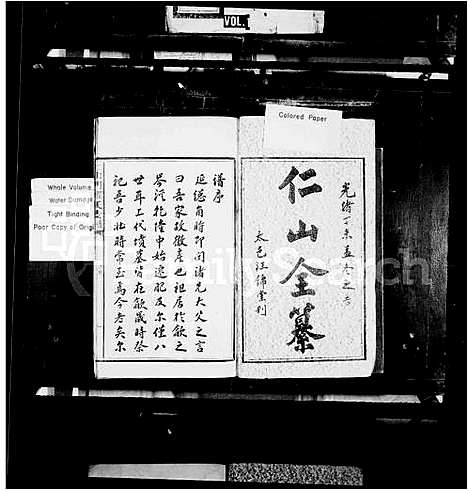 VOL.
Colored Paper
Whole Volume
Water Damage
Tight Binding
Poor Copy of Origi
FamilySearch
光緒丁未孟冬之吉
仁山全纂
太邑汪錦雲刊
譜序
延總角時即聞諸先大父之言
曰吾家故徽產也祖居於歙之
岑汊乾隆中始遷肥及尔僅八
世耳上代墳墓皆在歙歲時祭
祀吾少壯時常至焉今者矣尔